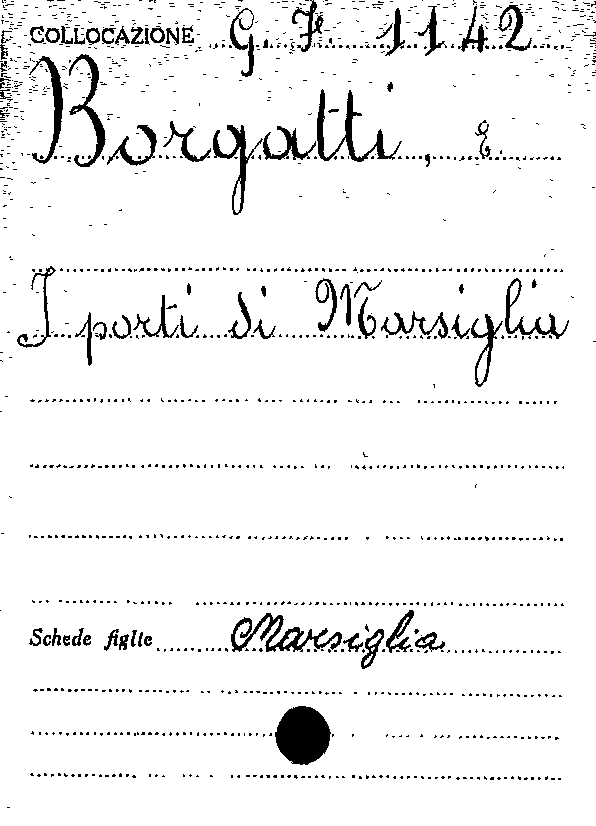 COLLOCAZIONE G. F. 1142
Borgatti, E.
I porti di Marsiglia
Schede figlie Marsiglia